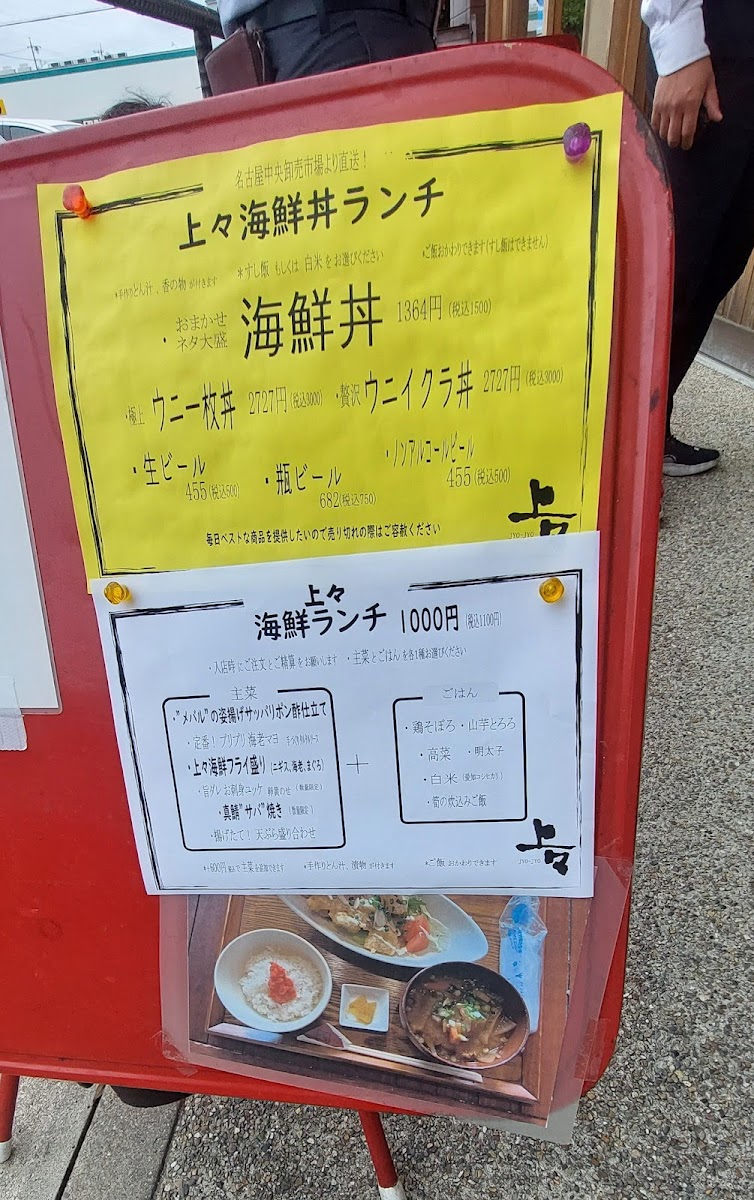 名古屋中央卸売市場より直送！
上々海鮮丼ランチ
*手作りとん汁、香の物 が付きます
*すし飯 もしくは 白米 をお選びください
*ご飯おかわりできます(すし飯はできません)
・おまかせ ネタ大盛 海鮮丼 1364円(税込1500)
・極上 ウニ一枚丼 2727円(税込3000)
・贅沢 ウニイクラ丼 2727円(税込3000)
・生ビール 455(税込500)
・瓶ビール 682(税込750)
・ノンアルコールビール 455(税込500)
毎日ベストな商品を提供したいので売り切れの際はご容赦ください
上々
JYO-JYO
上々
海鮮ランチ 1000円(税込1100円)
・入店時 にご注文 とご精算 をお願いします ・主菜 とごはん を各1種お選びください
主菜
・"メバル"の姿揚げサッパリポン酢仕立て
・定番！プリプリ海老マヨ
・上々海鮮フライ盛り(ニギス、海老、まぐろ)
・旨ダレ お刺身ユッケ 卵黄のせ (数量限定)
・真鯖"サバ"焼き (数量限定)
・揚げたて！天ぷら盛り合わせ
＋
ごはん
・鶏そぼろ ・山芋とろろ
・高菜 ・明太子
・白米(愛知コシヒカリ)
・筍の炊込みご飯
*+600円 税込で 主菜 を追加できます *手作りとん汁、漬物 が付きます *ご飯 おかわりできます
上々
JYO-JYO